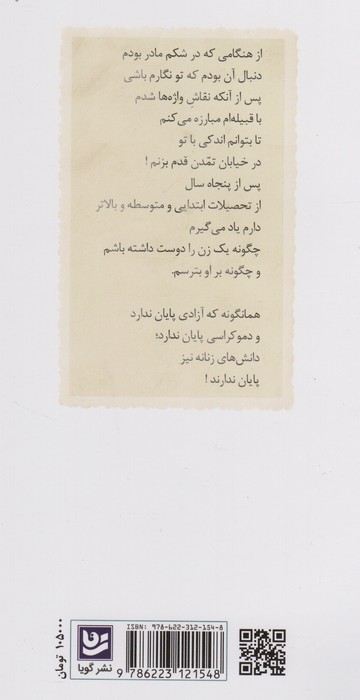 از هنگامی که در شکم مادر بودم
دنبال آن بودم که تو نگارم باشی
پس از آنکه نقاشِ واژه‌ها شدم
با قبیله‌ام مبارزه می‌کنم
تا بتوانم اندکی با تو
در خیابان تمّدن قدم بزنم !
پس از پنجاه سال
از تحصیلات ابتدایی و متوسطه و بالاتر
دارم یاد می‌گیرم
چگونه یک زن را دوست داشته باشم
و چگونه بر او بترسم.
همانگونه که آزادی پایان ندارد
و دموکراسی پایان ندارد؛
دانش‌های زنانه نیز
پایان ندارند !
۱۰۵۰۰۰ تومان
نشر گویا
ISBN: 978-622-312-154-8
9 786223 121548